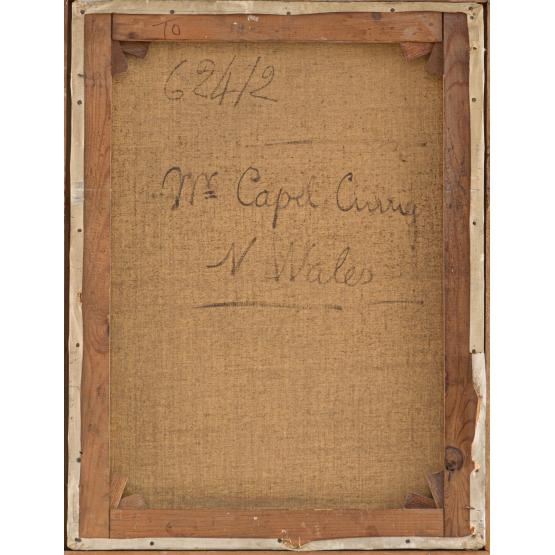 TO
624/2
Nr Capel Curig
N Wales